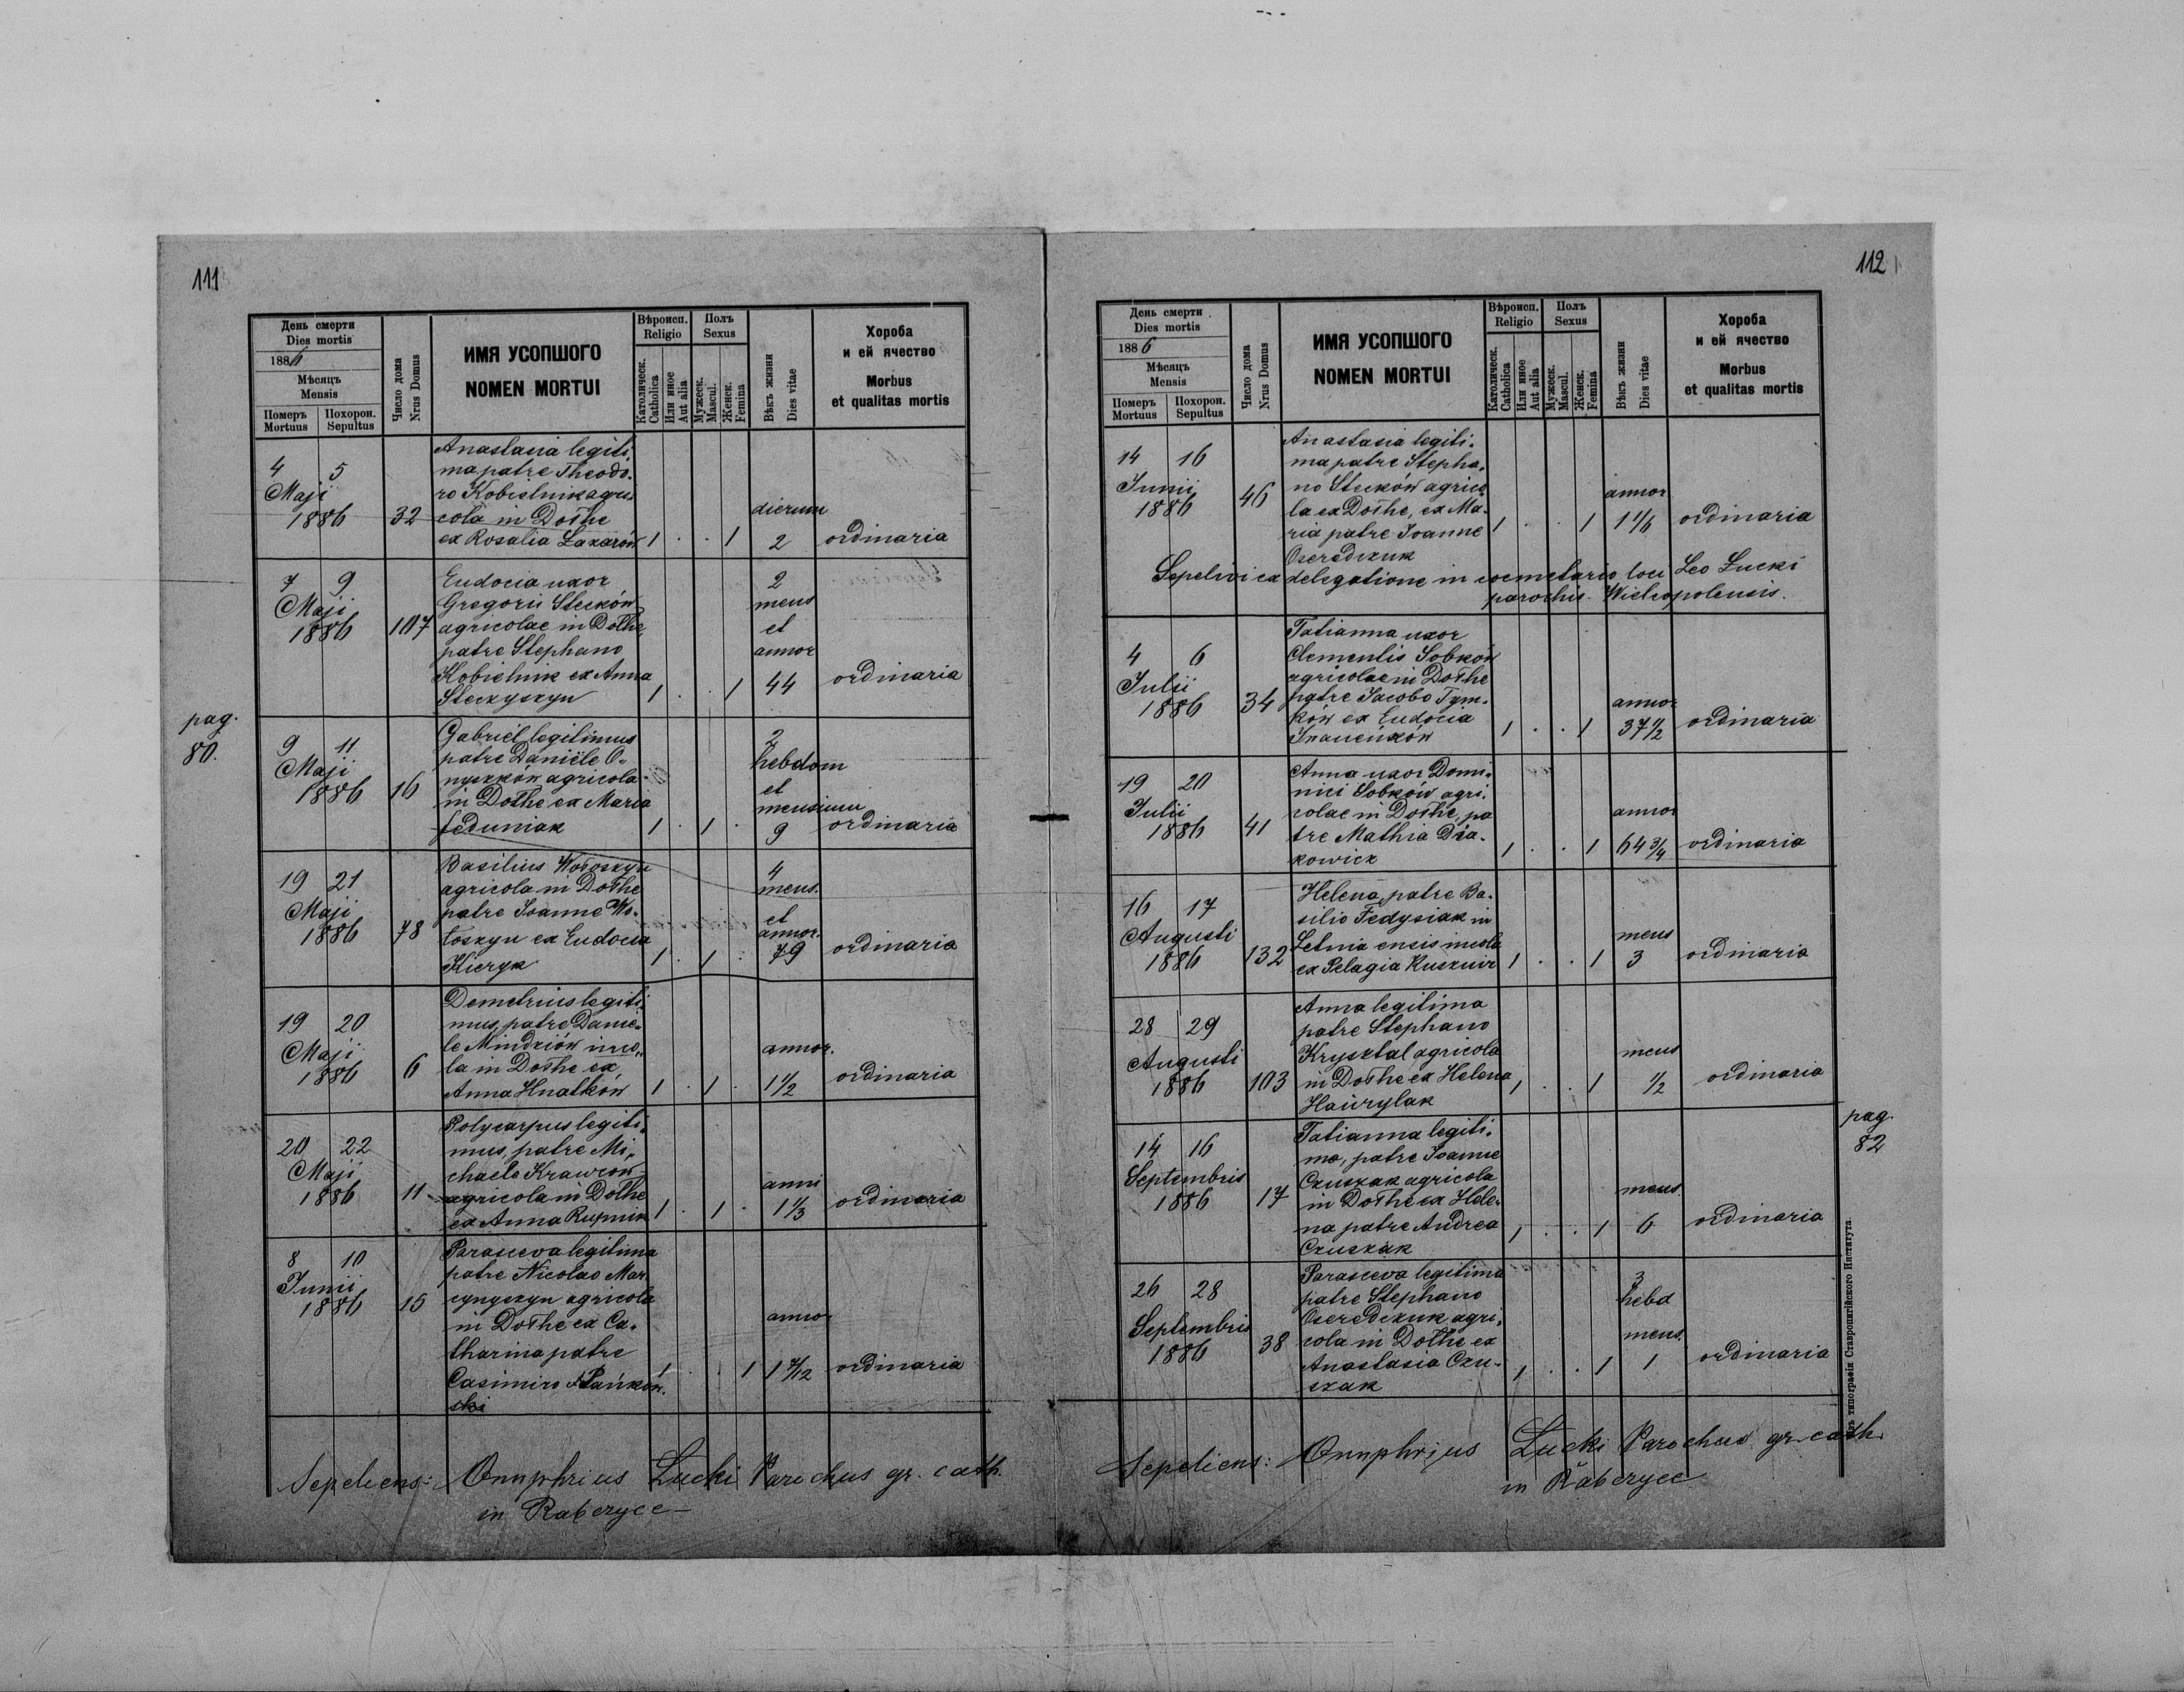 111
День смерти
Dies mortis
1886
Мѣсяцъ
Mensis
Померъ
Mortuus
Похорон.
Sepultus
Число дома
Nrus Domus
ИМЯ УСОПШОГО
NOMEN MORTUI
Вѣроисп.
Religio
Католическ.
Catholica
Или иное
Aut alia
Полъ
Sexus
Мужеск.
Mascul.
Женск.
Femina
Вѣкъ жизни
Dies vitae
Хороба
и ей ячество
Morbus
et qualitas mortis
4 5
Maji
1886
32
Anastasia legiti-
ma, patre Theodo-
ro Kobielnik agri-
cola in Dołhe
ex Rosalia Lazarów
1 . . 1
dierum
2
ordinaria
7 9
Maji
1886
107
Eudocia uxor
Gregorii Stecków
agricolae in Dołhe,
patre Stephano
Kobielnik ex Anna
Steckyszyn
1 . . 1
2
mens
et
annor
44
ordinaria
pag.
80.
9 11
Maji
1886
16
Gabriel legitimus
patre Daniële O-
nyszków agricola
in Dołhe ex Maria
Feduniak
1 . 1 .
2
hebdom
et
mensium
9
ordinaria
19 21
Maji
1886
78
Basilius Wołoszyn
agricola in Dołhe
patre Joanne Wo-
łoszyn ex Eudocia
Kieryk
1 . 1 .
4
mens.
et
annor.
79
ordinaria
19 20
Maji
1886
6
Demetrius legiti
mus, patre Danie-
le Mindziów inco-
la in Dołhe ex
Anna Hnatków
1 . 1 .
annor.
1 1/2
ordinaria
20 22
Maji
1886
11
Polycarpus legiti-
mus, patre Mi-
chaele Krawców
agricola in Dołhe
ex Anna Rupnik
1 . 1 .
anni
1 1/3
ordinaria
8 10
Junii
1886
15
Parasceva legitima
patre Nicolao Mar
cynyszyn agricola
in Dołhe ex Ca-
tharina patre
Casimiro Pańków.
ski
1 . . 1
annor
1 7/12
ordinaria
Sepeliens: Onuphrius Łucki Parochus gr. cath.
in Raberyce
112
День смерти
Dies mortis
1886
Мѣсяцъ
Mensis
Померъ
Mortuus
Похорон.
Sepultus
Число дома
Nrus Domus
ИМЯ УСОПШОГО
NOMEN MORTUI
Вѣроисп.
Religio
Католическ.
Catholica
Или иное
Aut alia
Полъ
Sexus
Мужеск.
Mascul.
Женск.
Femina
Вѣкъ жизни
Dies vitae
Хороба
и ей ячество
Morbus
et qualitas mortis
14 16
Junii
1886
46
Anastasia legiti-
ma patre Stepha-
no Steckòw agrico
la ex Dołhe, ex Ma-
ria patre Joanne
Oseredczuk
1 . . 1
annor
1 1/6
ordinaria
Sepelivi ex delegatione in coemetario loci Leo Łucki
parochus Wielopolensis.
4 6
Julii
1886
34
Tatianna uxor
Clementis Sobków
agricolae in Dołhe
patre Jacobo Tym-
ków ex Eudocia
1 . . 1
annor
37 1/2
ordinaria
19 20
Julii
1886
41
Anna uxor Domi-
nici Sobków agri-
colae in Dołhe, pa
tre Mathia Dia-
kowicz
1 . . 1
annor
64 3/4
ordinaria
16 17
Augusti
1886
132
Helena, patre Ba-
silio Fedysiak in
Letnia ensis incola
ex Pelagia Kusznir
1 . . 1
mens
3
ordinaria
28 29
Augusti
1886
103
Anna legitima
patre Stephano
Krysztal agricola
in Dołhe ex Helena
Hawrylak
1 . . 1
mens
1/2
ordinaria
14 16
Septembris
1886
17
Tatianna legiti-
ma, patre Joanne
Czuszak agricola
in Dołhe ex Hele-
na patre Andrea
Czuszak
1 . . 1
mens.
6
ordinaria
pag.
82
26 28
Septembris
1886
38
Parasceva legitima
patre Stephano
Oseredczuk agri-
cola in Dołhe ex
Anastasia Czu-
szak
1 . . 1
3
hebd
mens.
1
ordinaria
Sepeliens: Onuphrius Łucki Parochus gr. cath.
in Raberyce
Изъ типографіи Ставропигійского Института.